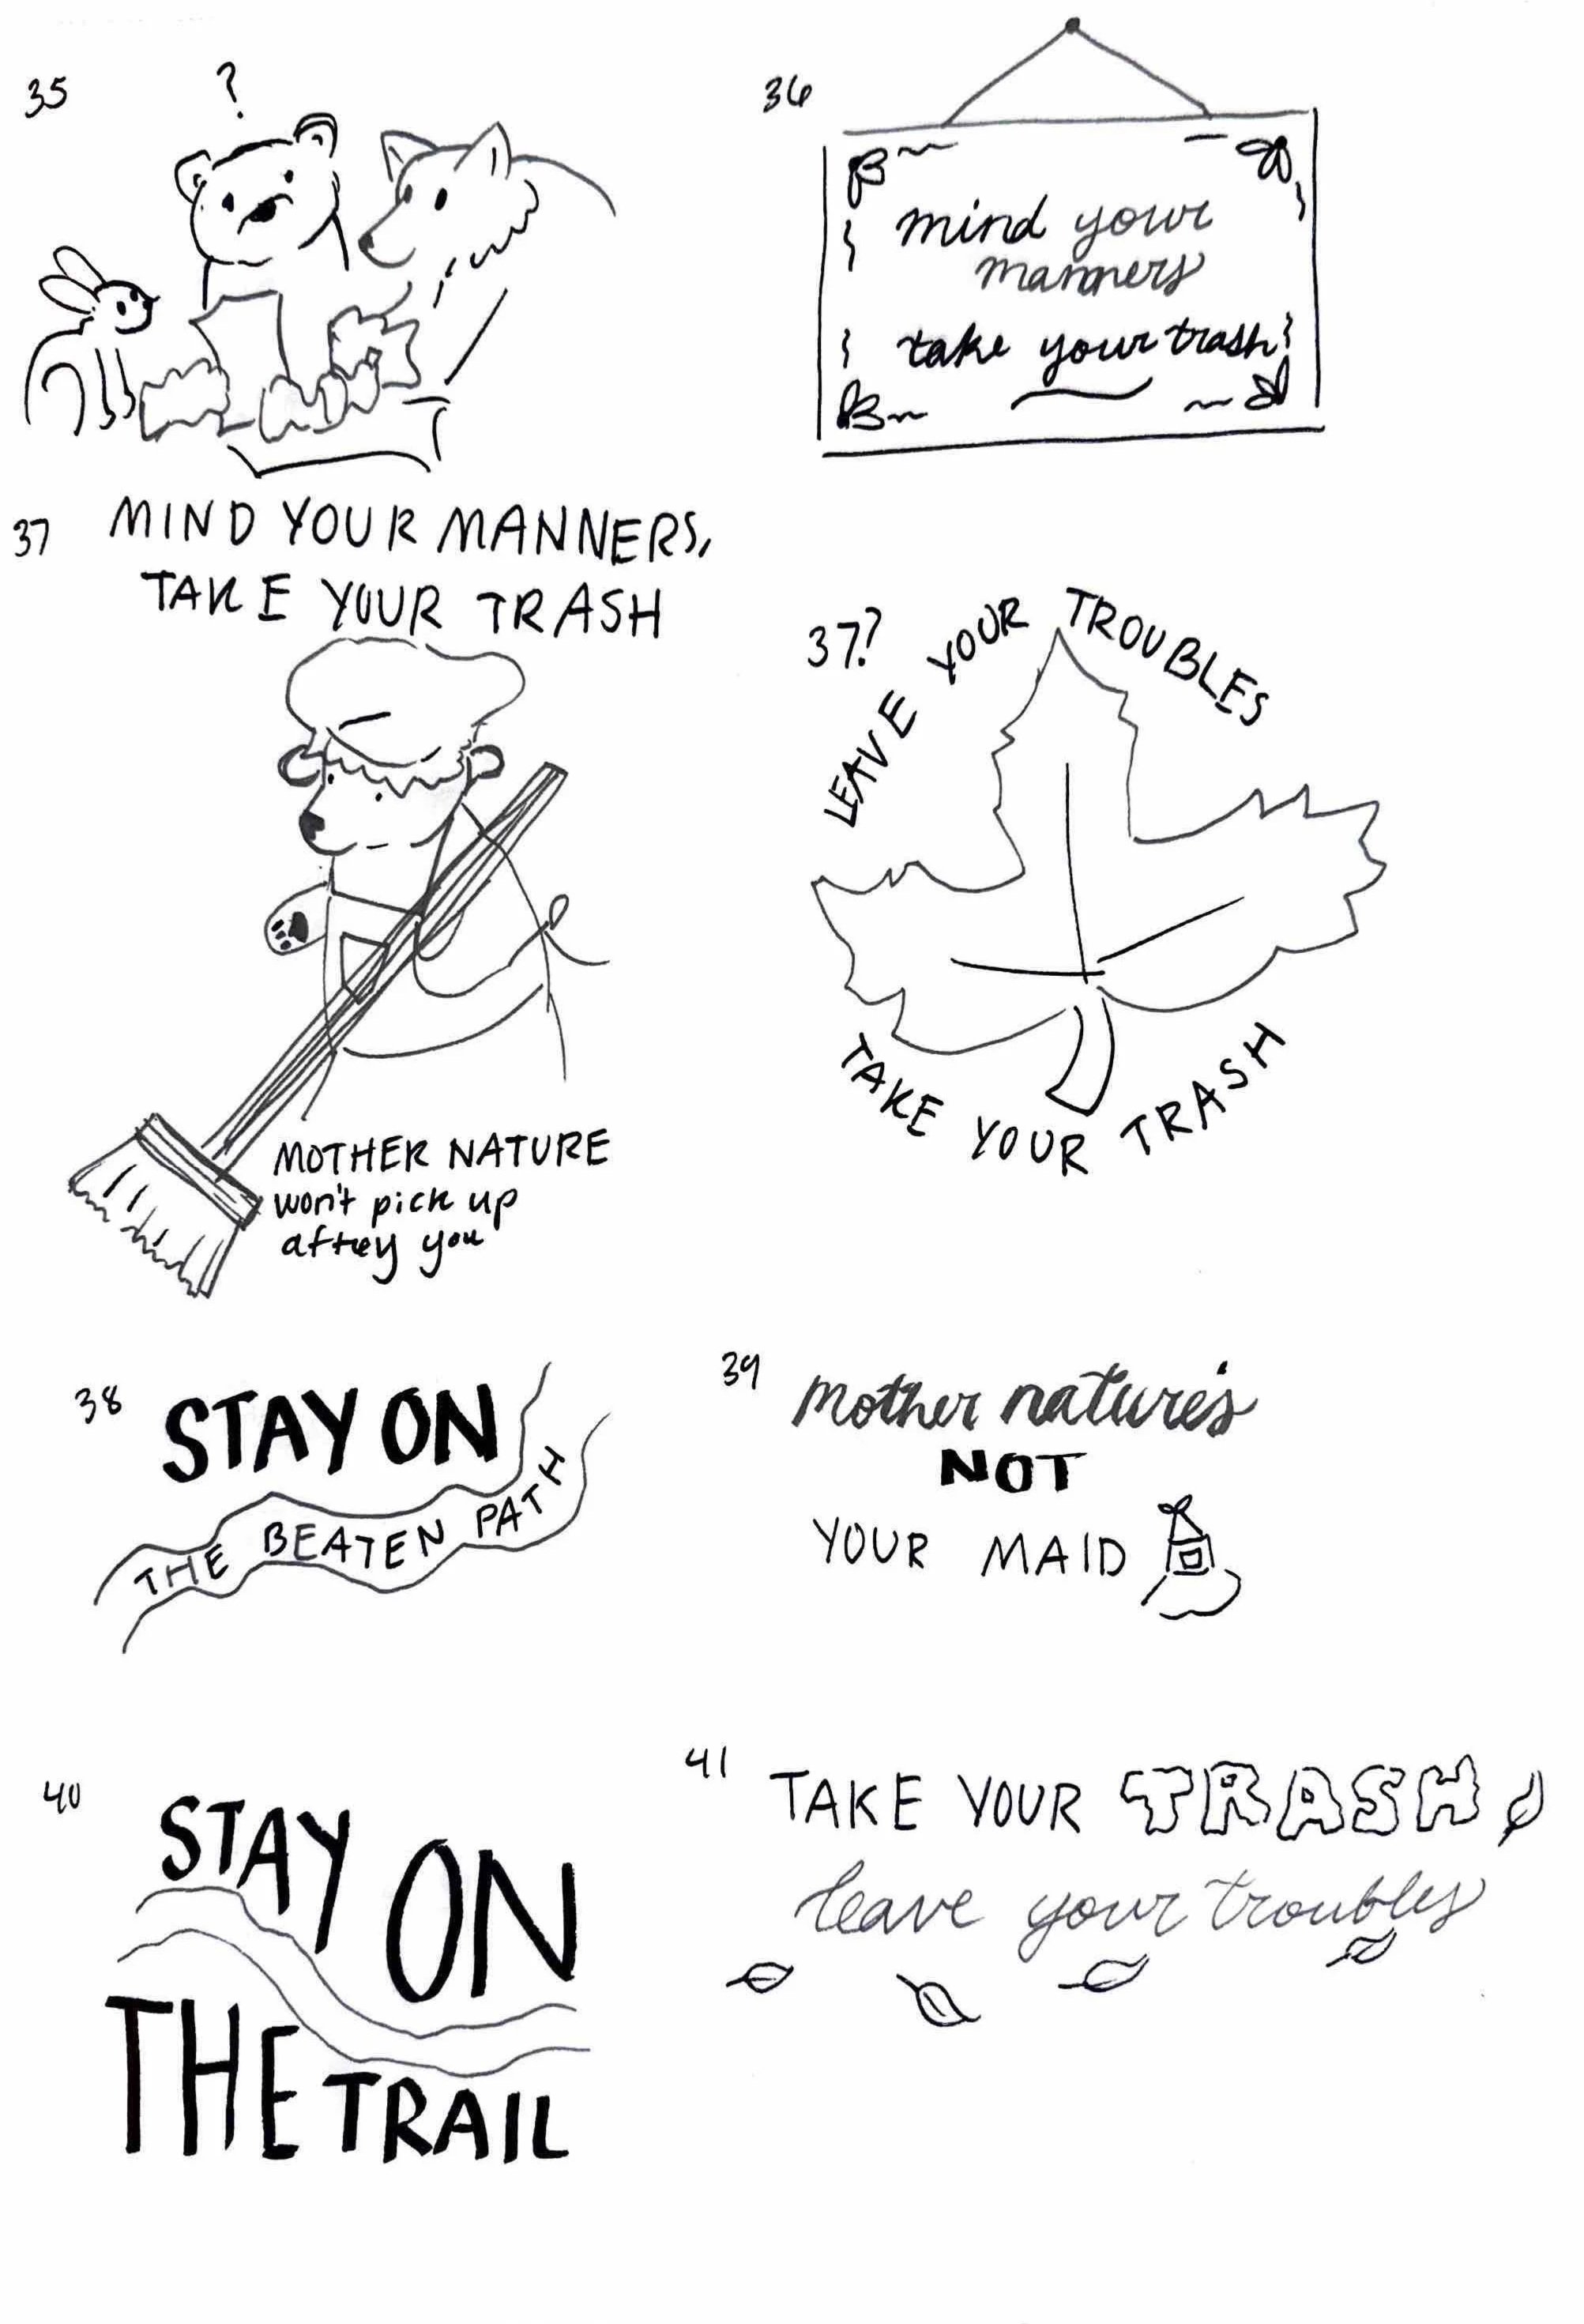 35
?
36
mind your
manners
take your trash
37
MIND YOUR MANNERS,
TAKE YOUR TRASH
MOTHER NATURE
won't pick up
after you
37?
LEAVE YOUR TROUBLES
TAKE YOUR TRASH
38
STAY ON
THE BEATEN PATH
39
mother nature's
NOT
YOUR MAID
40
STAY
ON
THE TRAIL
41
TAKE YOUR TRASH
leave your troubles